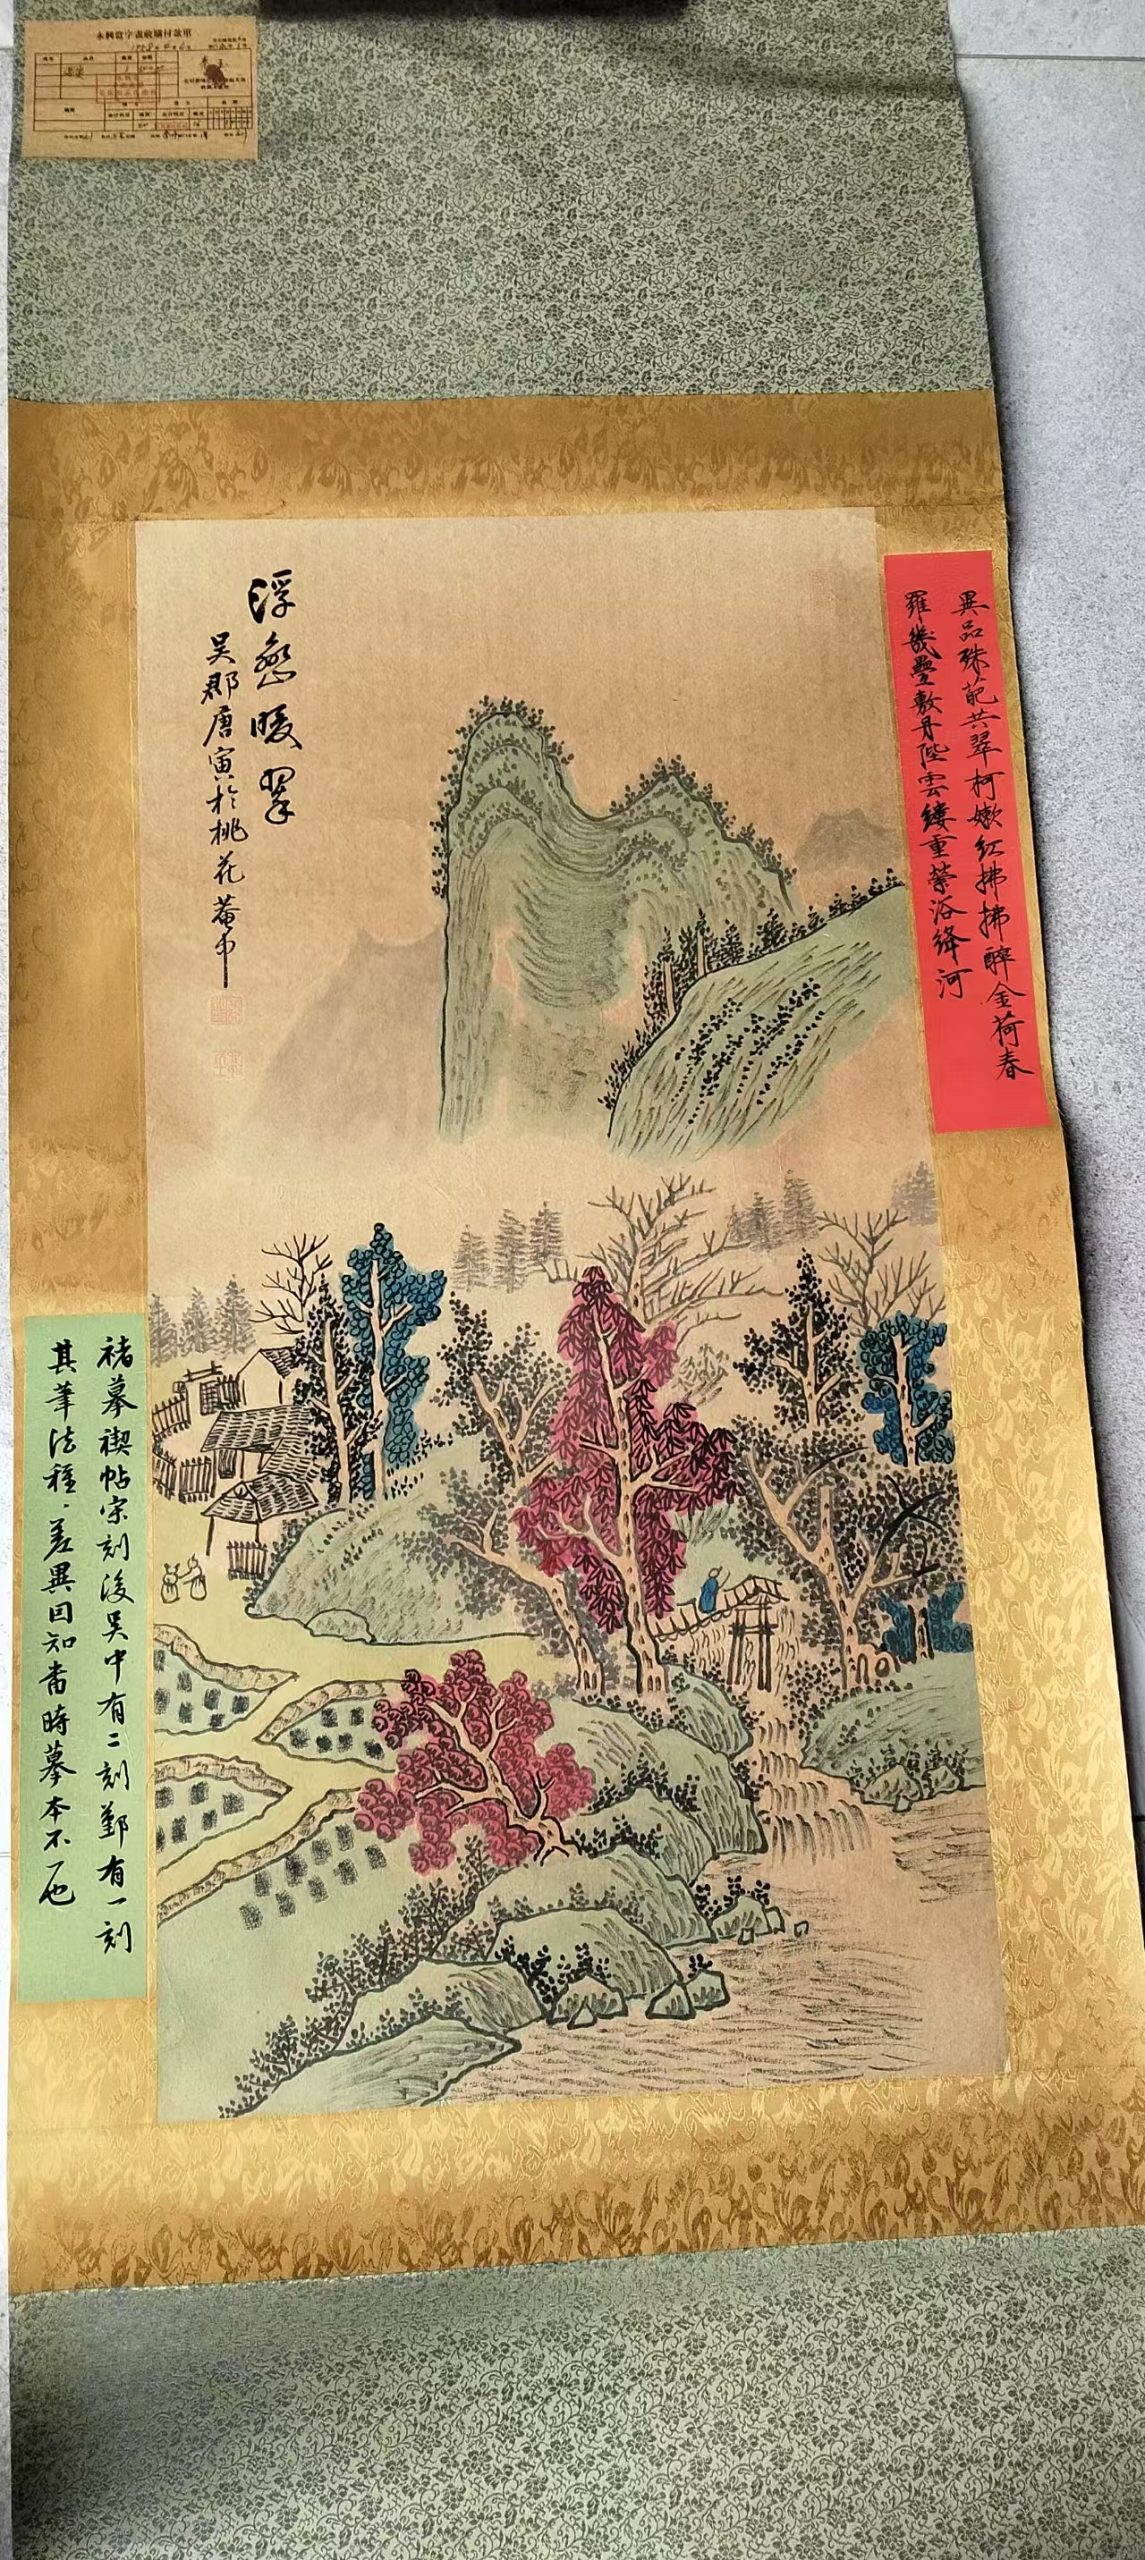 永興當字畫收購付款單
浮巒暖翠
吳郡唐寅於桃花菴中
異品殊葩共翠柯嫩紅拂拂醉金荷春
羅幾疊敷丹陛雲縷重縈浴絳河
褚摹禊帖宋刻後吳中有二刻鄞有一刻
其筆法種差異因知當時摹本不一也